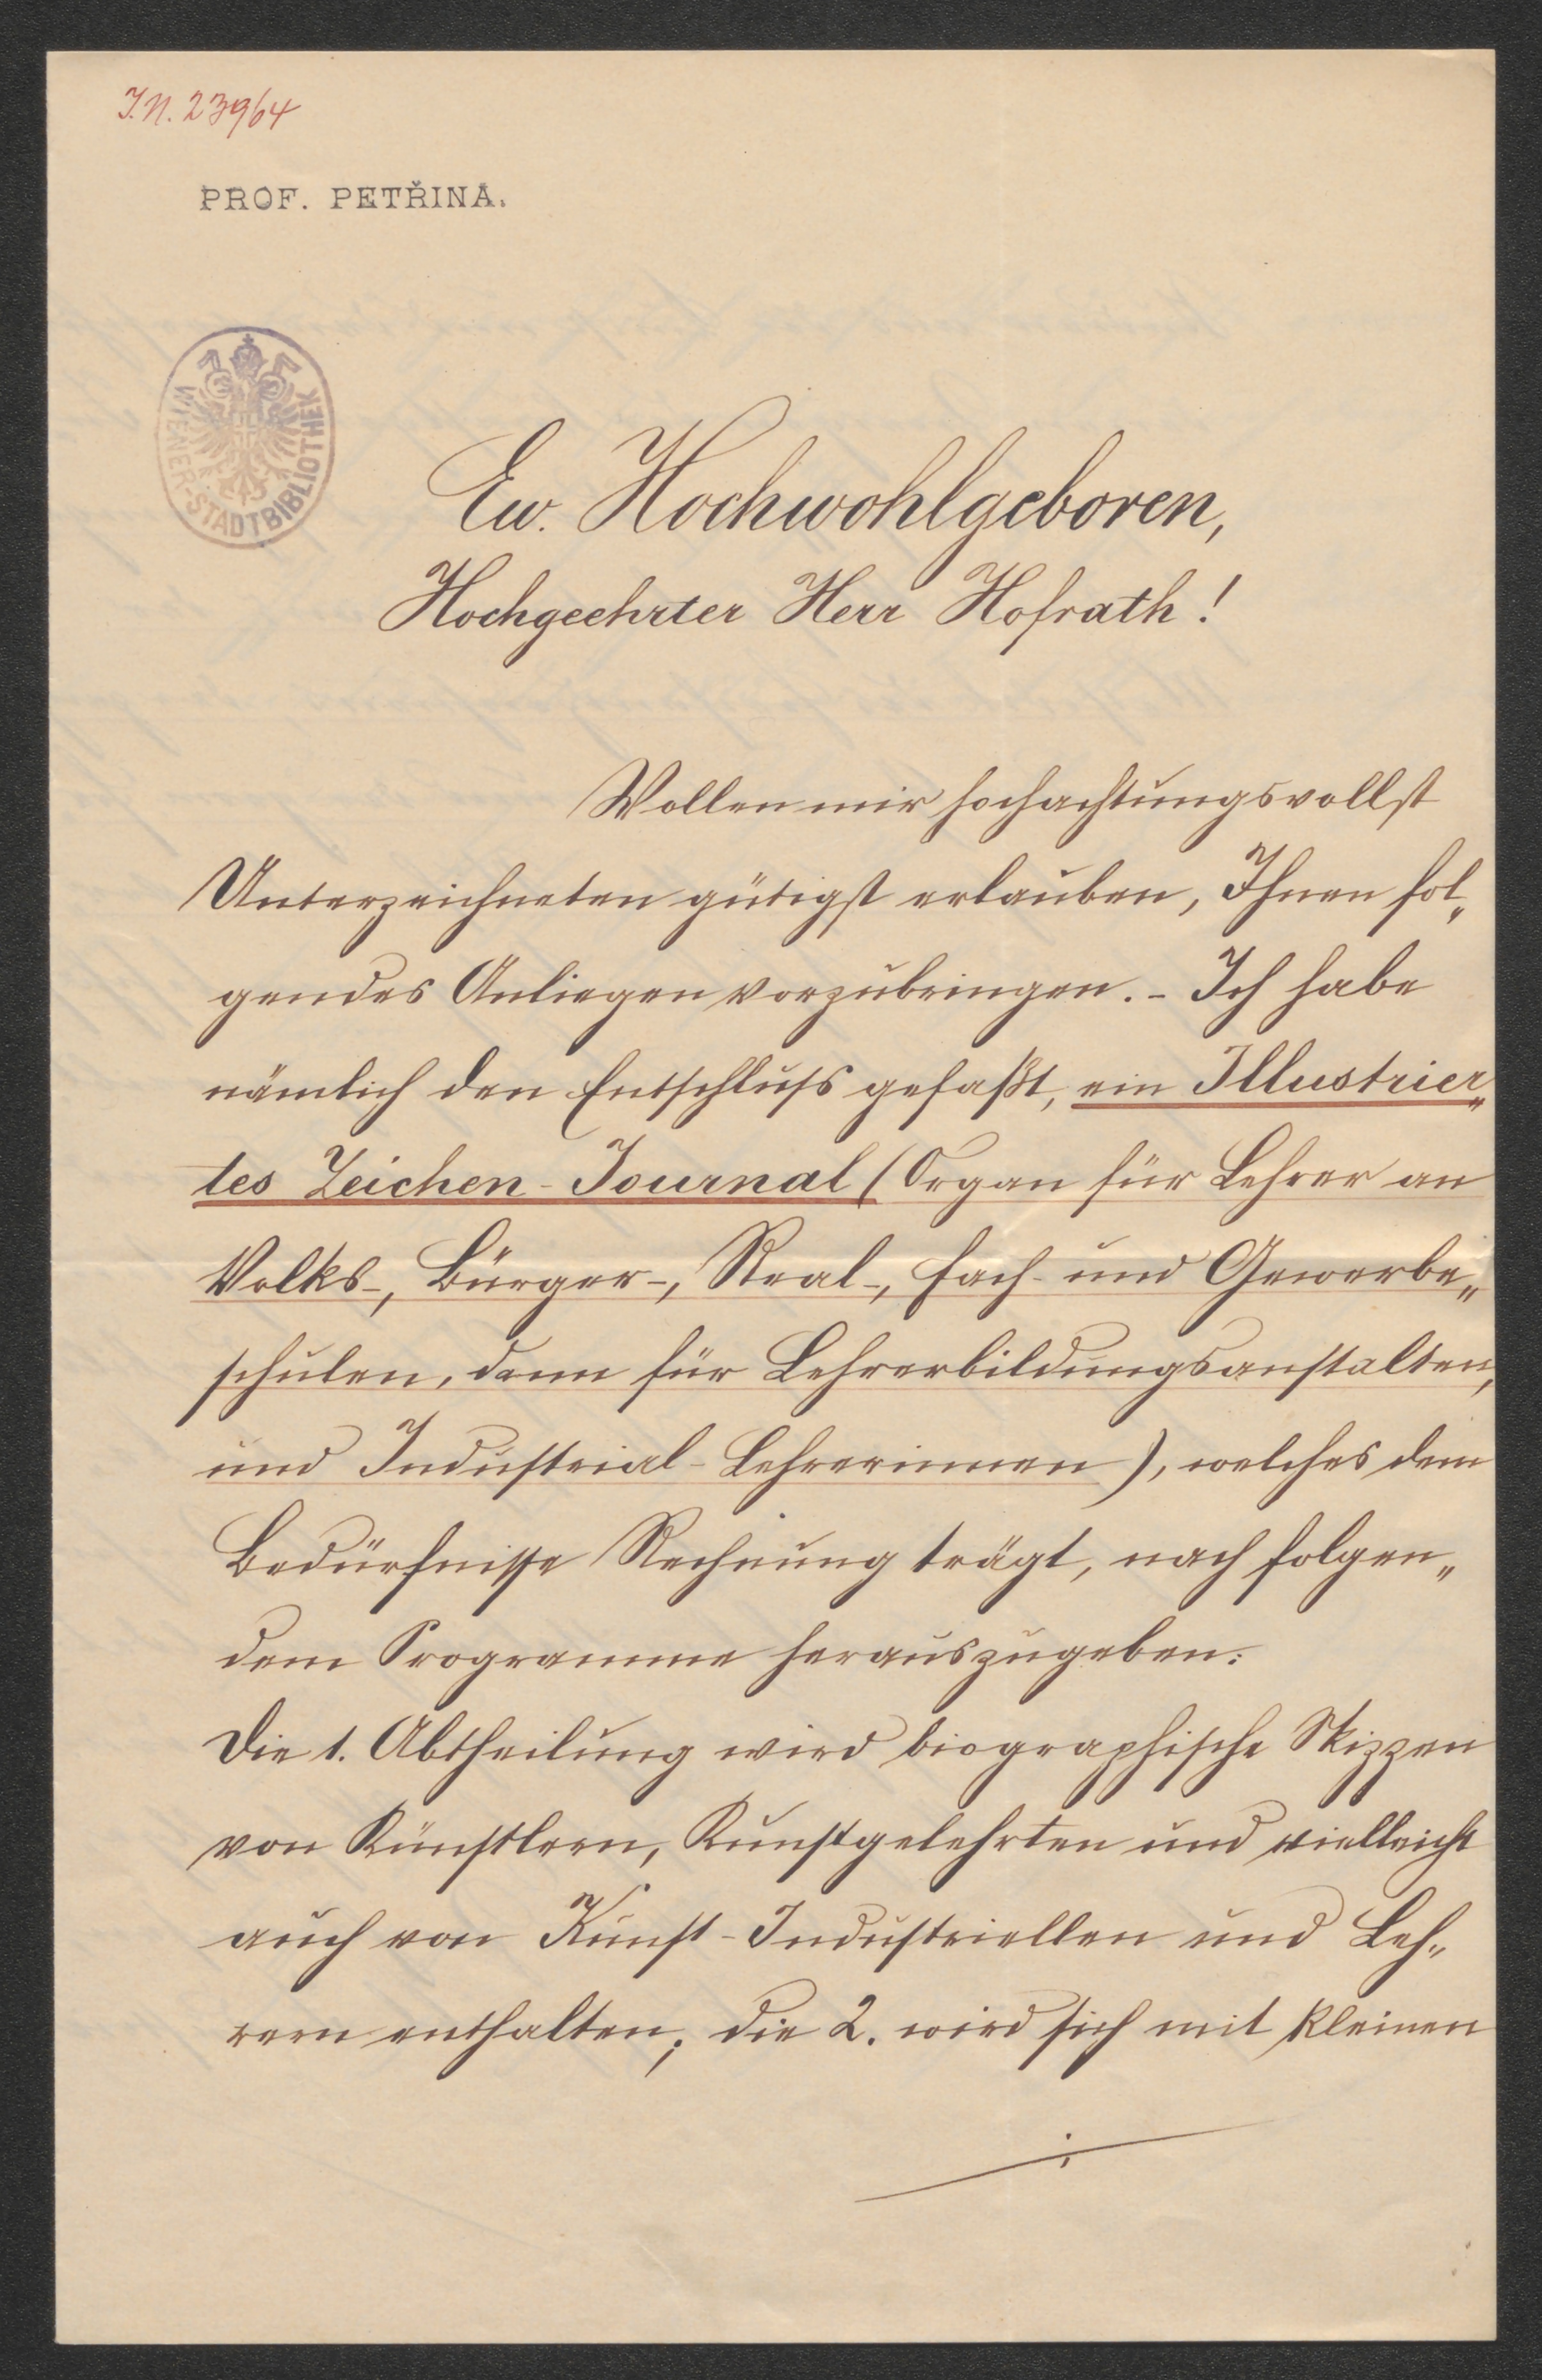 I.N. 23964
PROF. PETŘINA.
WIENER-STADTBIBLIOTHEK
Ew. Hochwohlgeboren,
Hochgeehrter Herr Hofrath!
Wollen mir hochachtungsvollst
Unterzeichneten gütigst erlauben, Ihnen fol„
gendes Anliegen vorzubringen. - Ich habe
nämlich den Entschluss gefaßt, ein Illustrier„
tes Zeichen-Journal (Organ für Lehrer an
Volks-, Bürger-, Real-, Fach- und Gewerbe„
schulen, dann für Lehrerbildungsanstalten,
und Industrial-Lehrerinnen), welches dem
Bedürfnisse Rechnung trägt, nach folgen„
dem Programme herauszugeben:
Die 1. Abtheilung wird biographische Skizzen
von Künstlern, Kunstgelehrten und vielleicht
auch von Kunst-Industriellen und Leh„
rern enthalten; die 2. wird sich mit kleinen